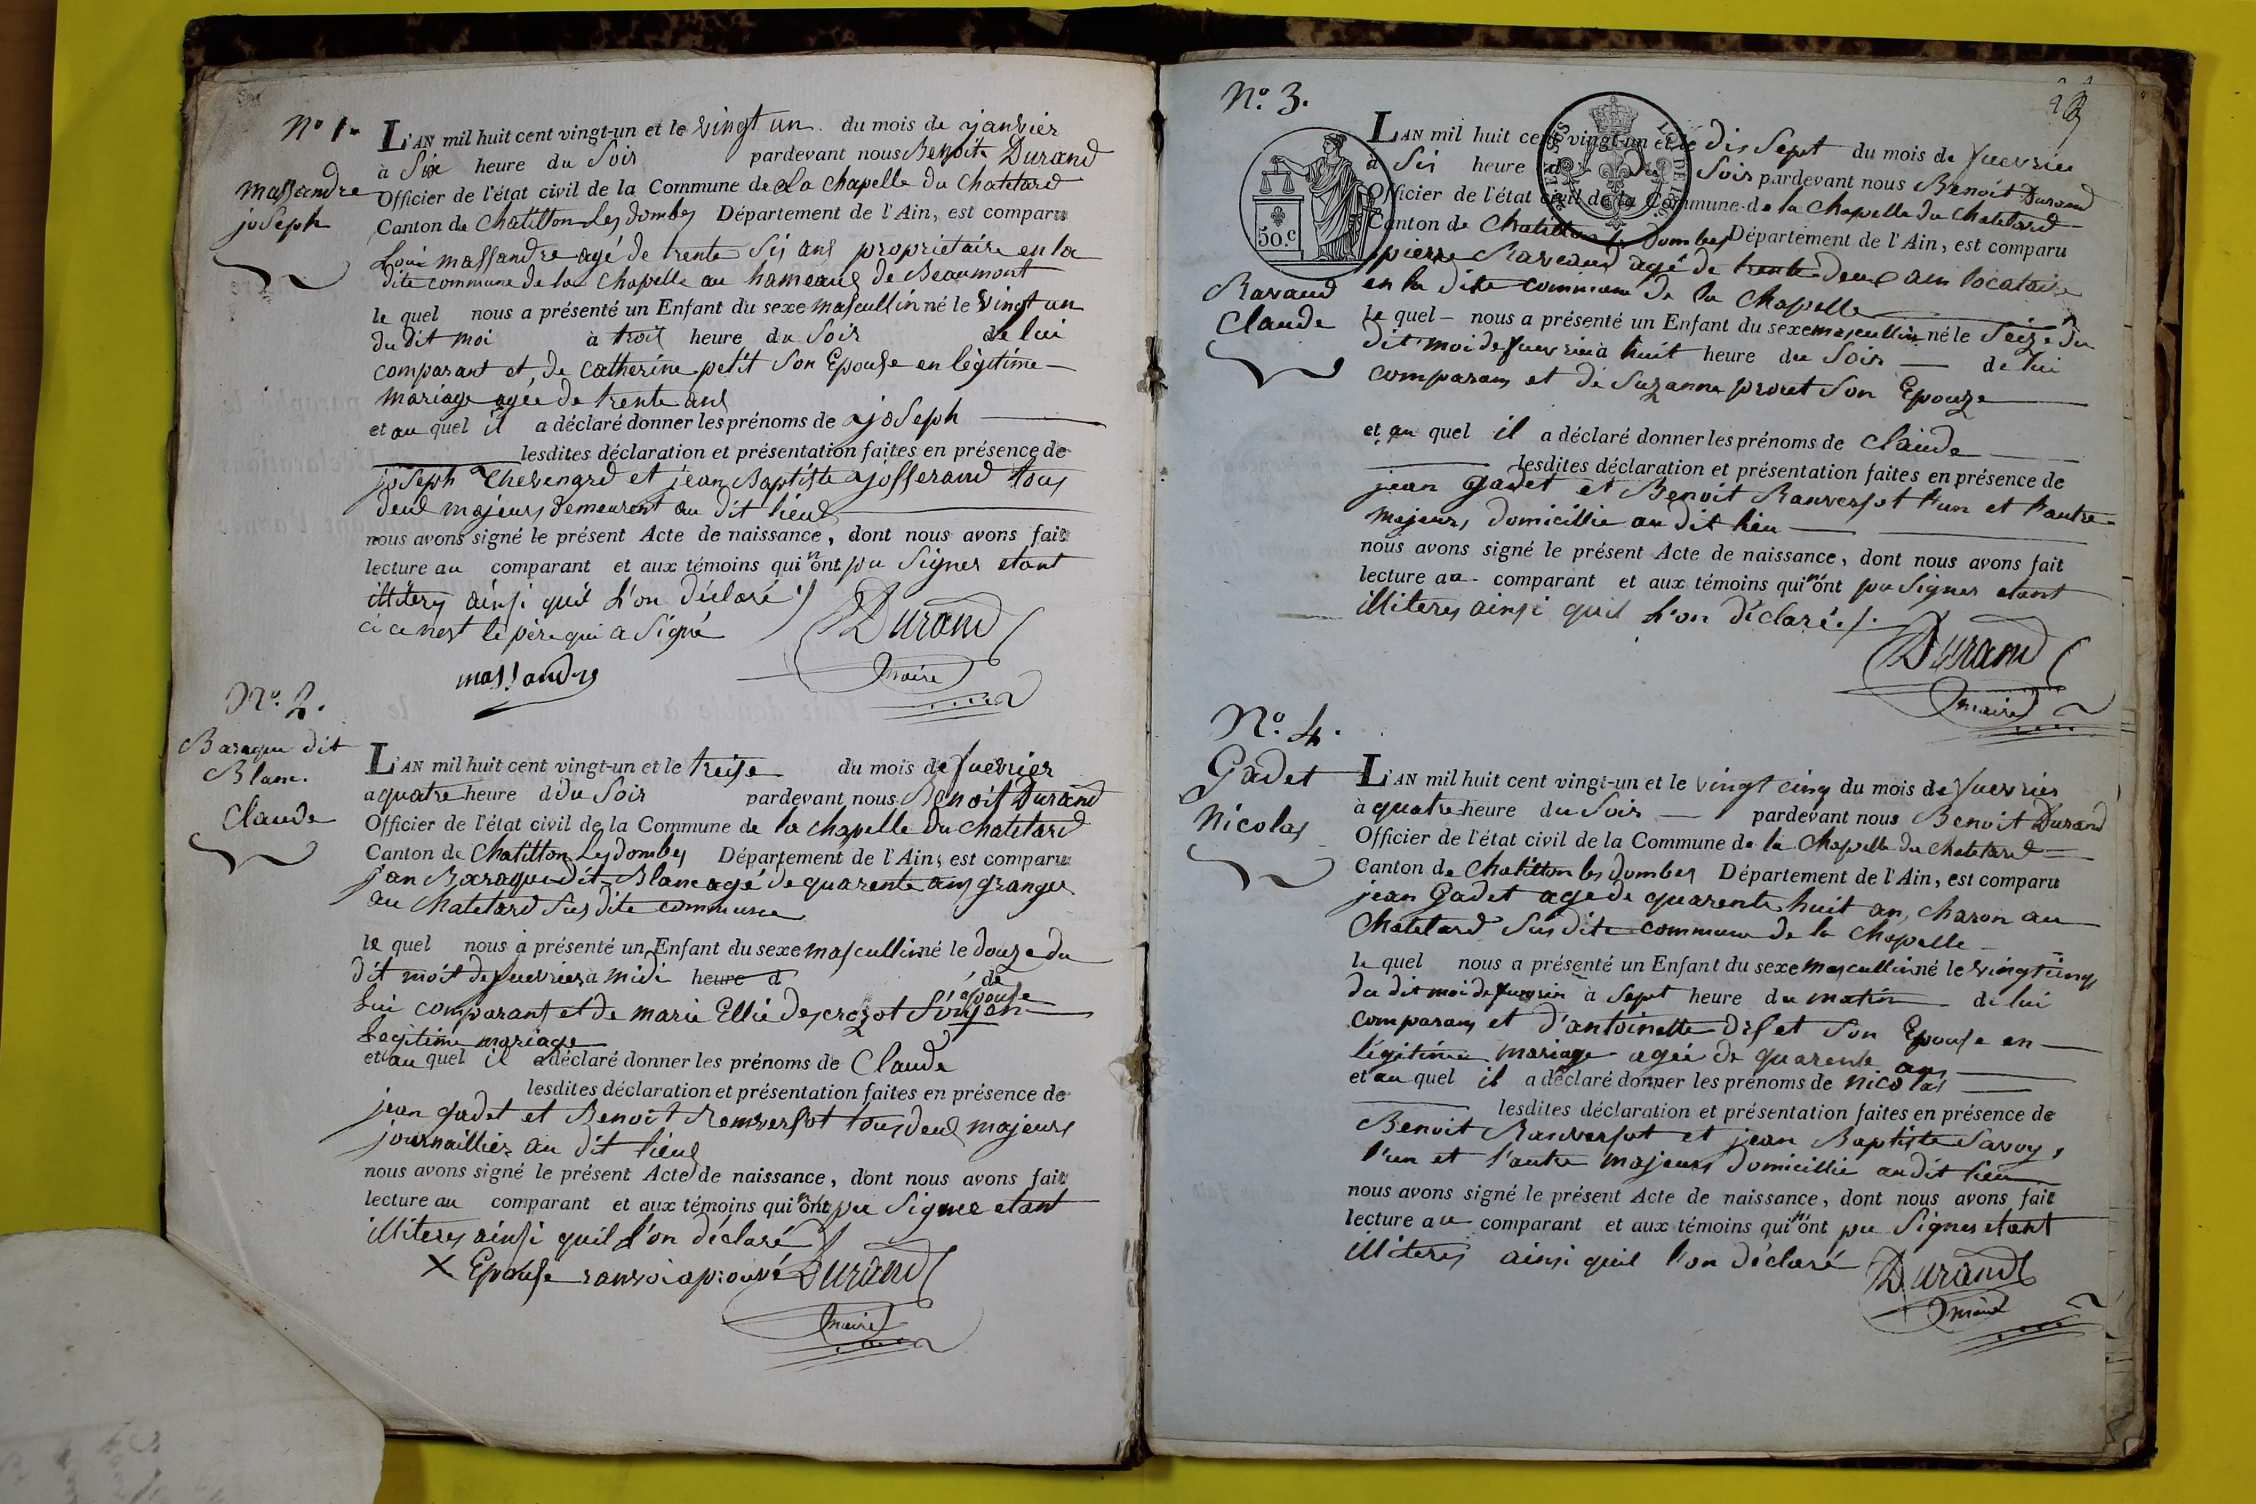 No 1.
massandre
joseph
L'AN mil huit cent vingt-un et le vingt un du mois de janvier
à Six heure du Soir pardevant nous Benoit Durand
Officier de l'état civil de la Commune de La chapelle du Chatelard
Canton de Chatillon Les dombes Département de l'Ain, est comparu
Loui massandre agé de trente Sis ans propriétaire en la
dite commune de la Chapelle au hameaux de Beaumont
le quel nous a présenté un Enfant du sexe mascullin né le vingt un
du dit moi à trois heure du Soir de lui
comparant et de Catherine petit Son Epouse en légitime
mariage agée de trente ans
et au quel il a déclaré donner les prénoms de joseph
lesdites déclaration et présentation faites en présence de
joseph Thevengrd et jean Baptiste josserand tous
deux majeurs demeurent au dit lieux
nous avons signé le présent Acte de naissance, dont nous avons fait
lecture au comparant et aux témoins qui n'ont pu Signer etant
illiterés ainsi quil l'on déclaré
ci ce nest le père qui a Signé
Durand
maire
massandre
No. 2.
Baraque dit
Blanc.
Claude
L'AN mil huit cent vingt-un et le treise du mois de fuevrier
a quatre heure d du Soir pardevant nous Benoit Durand
Officier de l'état civil de la Commune de la chapelle du chatelard
Canton de Chatillon Les dombes Département de l'Ain, est comparu
jan Baraque dit Blanc agé de quarente ans granger
au Chatelard Sus dite commune
le quel nous a présenté un Enfant du sexe mascullin né le douze du
dit moit de fuevrier a midi heure d de
Lui comparant et de marie Ellie descrozot Son en
épouse
Legitime mariage
et au quel il a déclaré donner les prénoms de Claude
lesdites déclaration et présentation faites en présence de
jean gadet et Benoit Remversot tous deux majeurs
journaillier au dit lieux
nous avons signé le présent Acte de naissance, dont nous avons fait
lecture au comparant et aux témoins qui n'ont pu Signer etant
illiterés ainsi quil l'on déclaré
X Epouse ranvoi aprouvé Durand
maire
No. 3.
Ravaud
Claude
50.c
L'AN mil huit cent vingt-un et le dis Sept du mois de fuevrier
à Sis heure du Soir pardevant nous Benoit Durand
Officier de l'état civil de la Commune de la Chapelle du Chatelard
Canton de Chatillon les Dombes Département de l'Ain, est comparu
pierre Raveaud agé de trente deux ans locataire
en la dite commune de la Chapelle
le quel nous a présenté un Enfant du sexe mascullin né le Seize du
dit moi de fuevrier à huit heure du Soir de lui
comparans et de Suzanne prout Son Epouze
et au quel il a déclaré donner les prénoms de Claude
lesdites déclaration et présentation faites en présence de
jean gadet et Benoit Ranversot l'un et l'autre
majeurs domicillie au dit lieu
nous avons signé le présent Acte de naissance, dont nous avons fait
lecture au comparant et aux témoins qui n'ont pu Signer etant
illiteres ainsi quil l'on déclaré./.
Durand
maire
No. 4.
Gadet
Nicolas
L'AN mil huit cent vingt-un et le vingt cinq du mois de fuevrier
à quatre heure du Soir pardevant nous Benoit Durand
Officier de l'état civil de la Commune de la Chapelle du Chatelard
Canton de Chatillon les dombes Département de l'Ain, est comparu
jean Gadet age de quarente huit an, charon au
Chatelard Sus dite commune de la Chapelle
le quel nous a présenté un Enfant du sexe mascullin né le vingt cinq
du dit moi de fuevrier à Sept heure du matin de lui
comparans et d'antoinette Son Epouse en
légitime mariage agée de quarente ans
et au quel il a déclaré donner les prénoms de nicolas
lesdites déclaration et présentation faites en présence de
Benoit Ranversot et jean Baptiste Savoy,
l'un et l'autre majeurs domicillié audit lieu
nous avons signé le présent Acte de naissance, dont nous avons fait
lecture au comparant et aux témoins qui n'ont pu Signer etant
illiterés ainsi quil l'on déclaré
Durand
maire